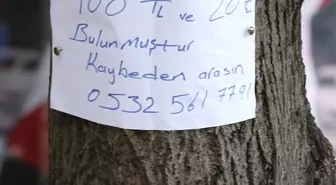 100 TL ve 20£
Bulunmuştur
Kaybeden arasın
0532 561 7791